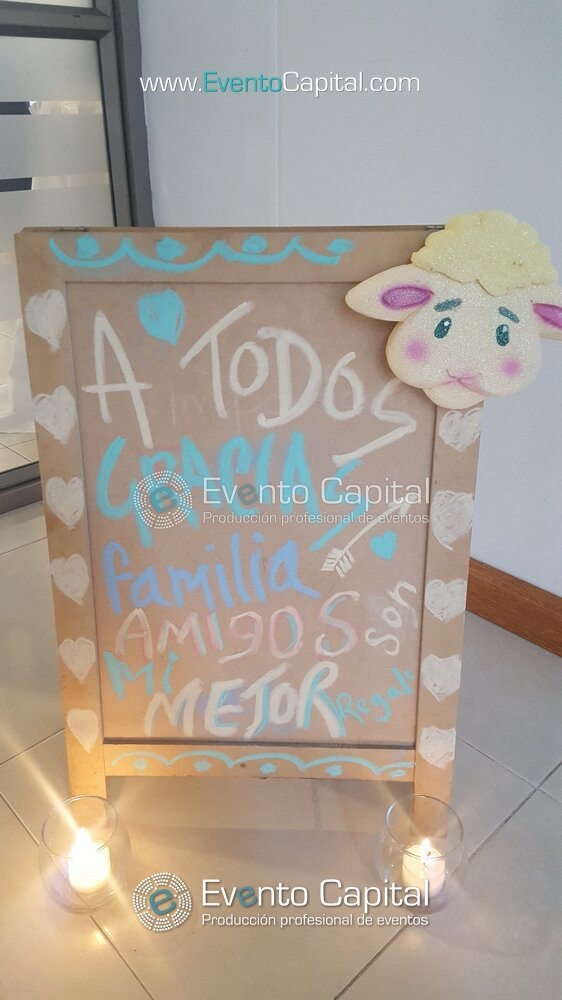 www.EventoCapital.com
A TODOS
GRACIAS
e Evento Capital
Producción profesional de eventos
familia
AMIgOS son
Mi
MEJOR Regalo
e Evento Capital
Producción profesional de eventos